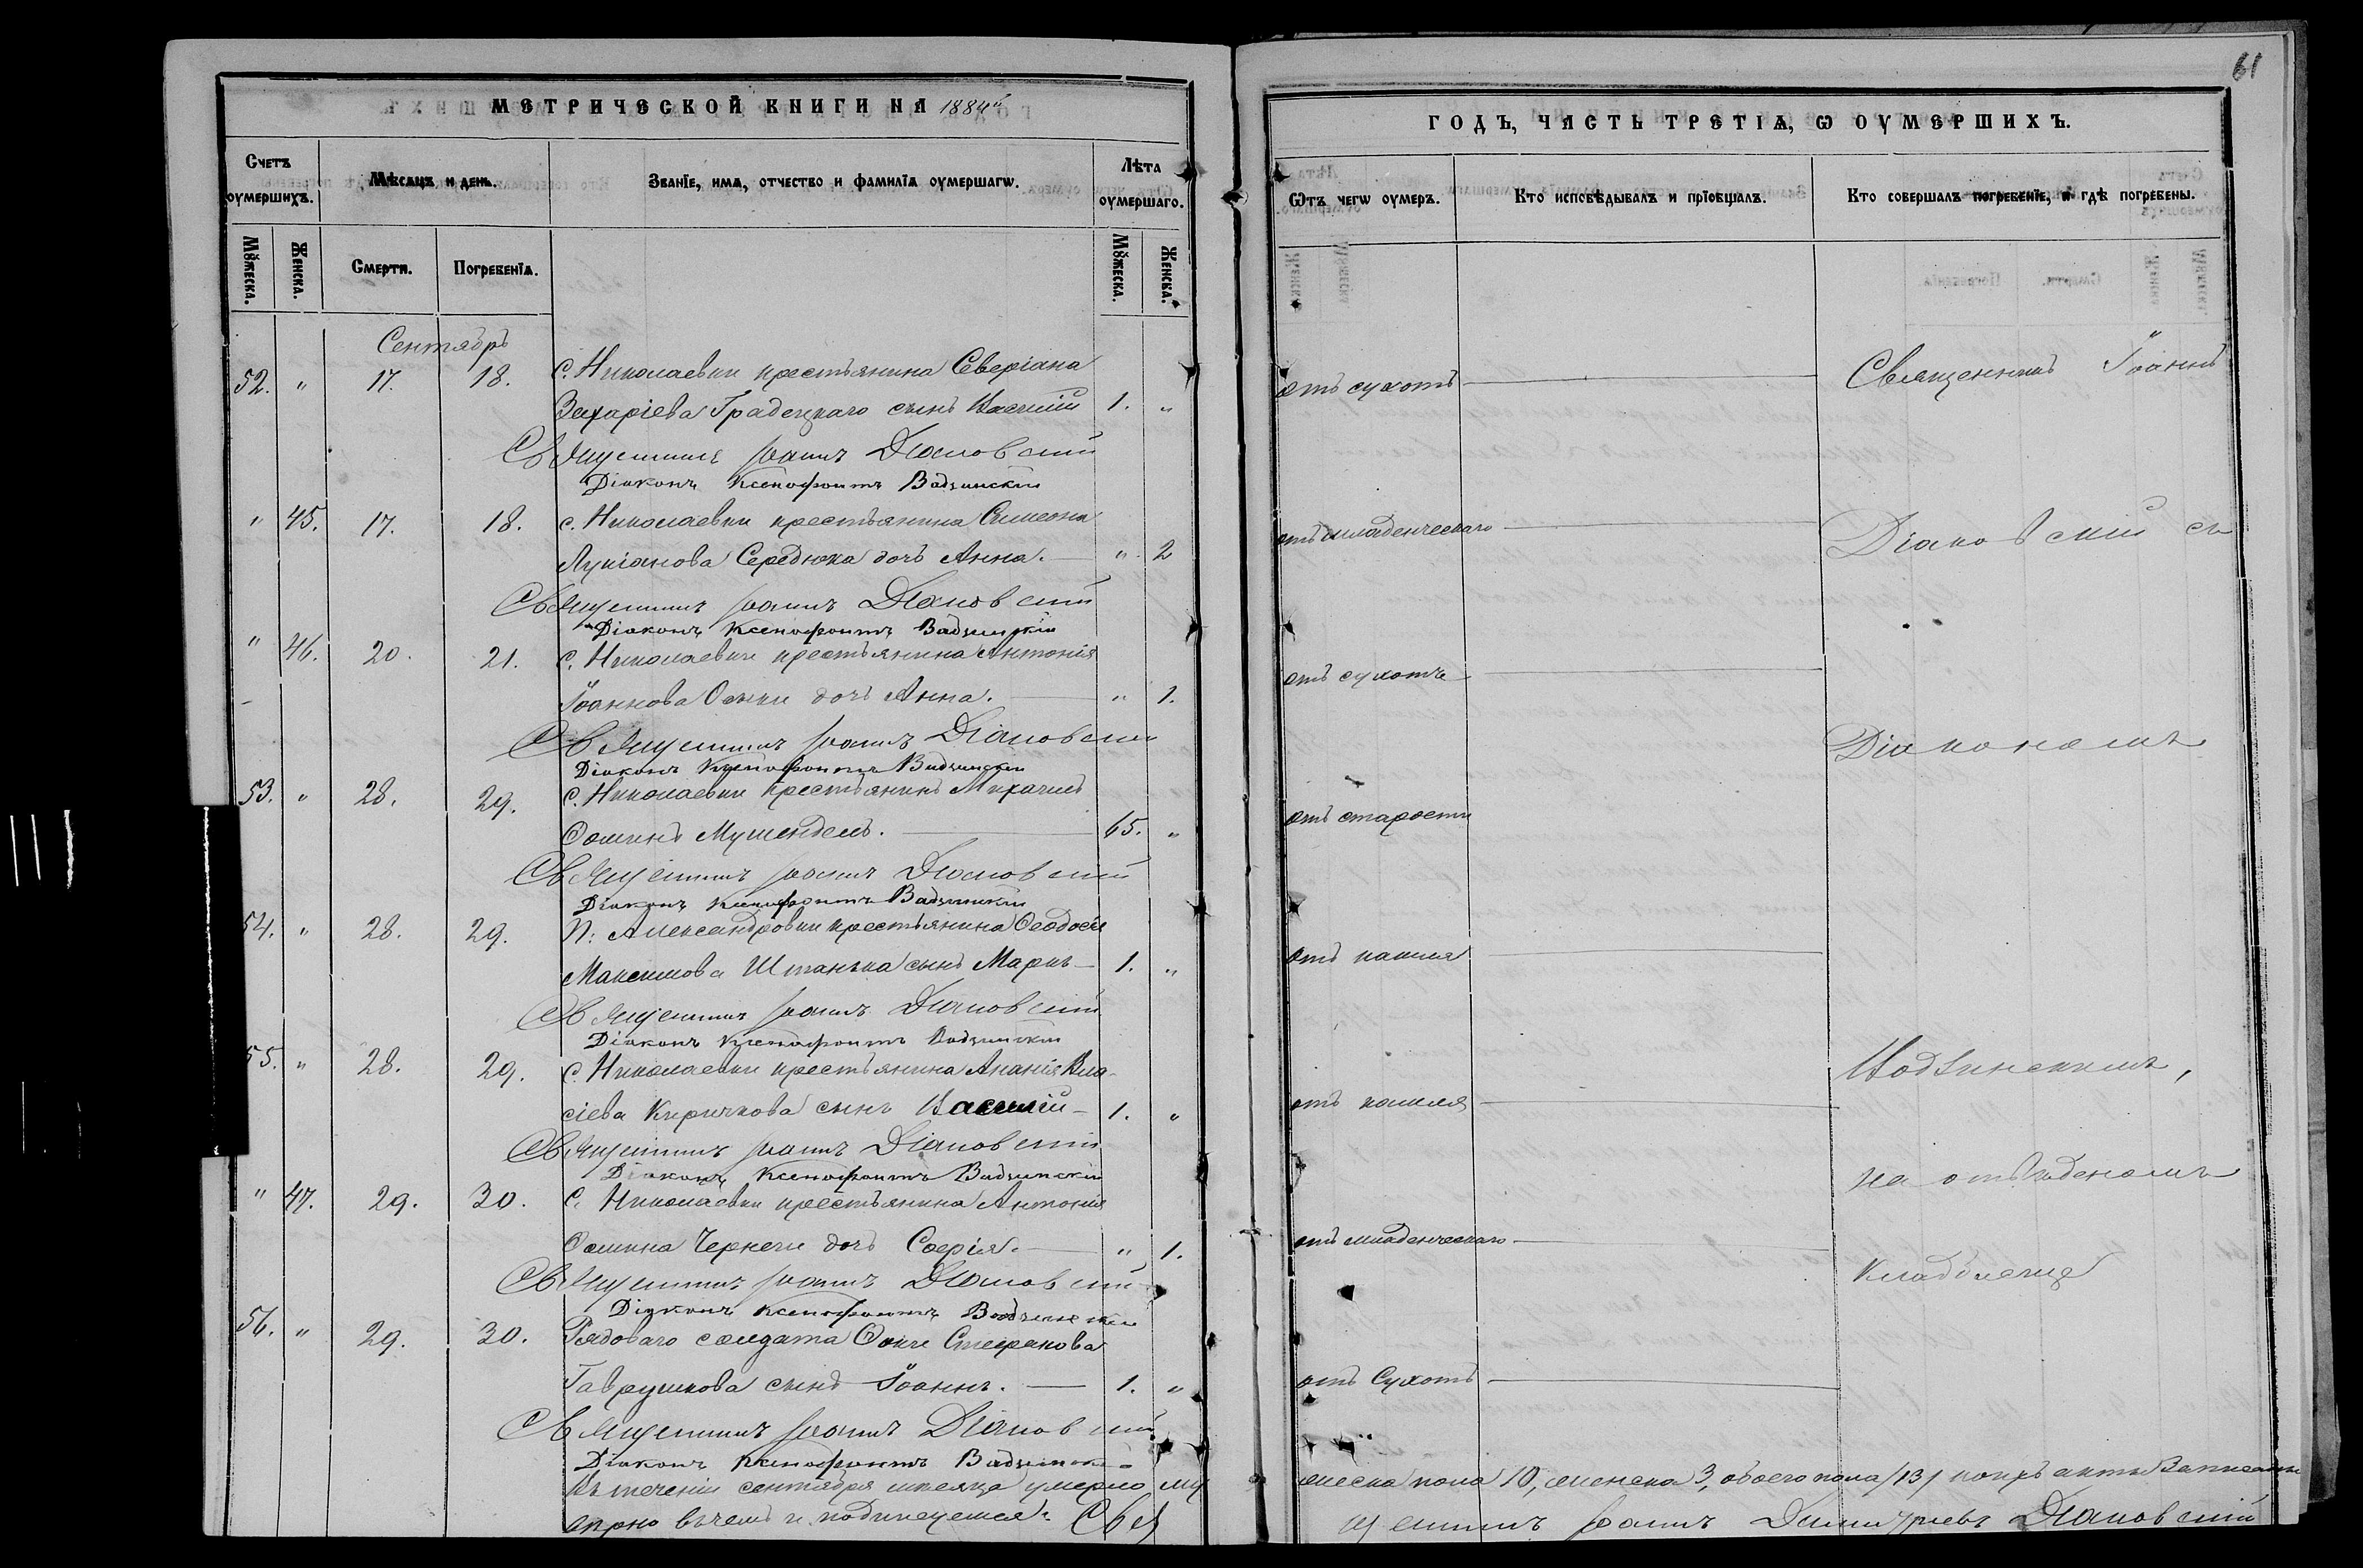 61
МЕТРИЧЕСКОЙ КНИГИ НА 1884й
ГОДЪ, ЧАСТЬ ТРЕТІѦ, Ѡ ОУМЕРШИХЪ.
Счетъ оумершихъ.
Мѣсѧцъ и день.
Званїе, имѧ, отчество и фамилїѧ оумершагѡ.
Лѣта оумершаго.
Ѿтъ чегѡ оумеръ.
Кто исповѣдывалъ и прїобщалъ.
Кто совершалъ погребенїе, и гдѣ погребены.
Мꙋжеска.
Женска.
Смерти.
Погребенїѧ.
Мꙋжеска.
Женска.
Сентябрь
52. " 17. 18. с. Николаевки крестьянина Северіана
Захаріева Градецкаго сынъ Василій 1. "
отъ сухотъ
Священникъ Іоаннъ Діаковскій
Діаконъ Ксенофонтъ Вадзинскій
" 45. 17. 18. с. Николаевки крестьянина Симеона
Лукіанова Середюка дочь Анна. " 2
отъ младенческаго
Священникъ Іоаннъ Діаковскій
Діаконъ Ксенофонтъ Вадзинскій
" 46. 20. 21. с. Николаевки крестьянина Антонія
Іоаннова дочь Анна. " 1.
отъ сухотъ
Священникъ Іоаннъ Діаковскій
Діаконъ Ксенофонтъ Вадзинскій
53. " 28. 29. с. Николаевки крестьянинъ Михаилъ
Ѳоминъ 65. "
отъ старости
Священникъ Іоаннъ Діаковскій
Діаконъ Ксенофонтъ Вадзинскій
54. " 28. 29. п. Александровки крестьянина Ѳеодосія
Максимова Штанька сынъ Маркъ 1. "
отъ кашля
Священникъ Іоаннъ Діаковскій
Діаконъ Ксенофонтъ Вадзинскій
55. " 28. 29. с. Николаевки крестьянина Ананія Вла-
сіева Киричкова сынъ Василій 1. "
отъ кашля
Священникъ Іоаннъ Діаковскій
Діаконъ Ксенофонтъ Вадзинскій
" 47. 29. 30. с. Николаевки крестьянина Антонія
Ѳомина Чернеги дочь Софія. " 1.
отъ младенческаго
Священникъ Іоаннъ Діаковскій
Діаконъ Ксенофонтъ Вадзинскій
56. " 29. 30. Рядоваго солдата Ѳомы Стефанова
Гаврушкова сынъ Іоаннъ. 1. "
отъ Сухотъ
Священникъ Іоаннъ Діаковскій
Діаконъ Ксенофонтъ Вадзинскі
Священникъ Іоаннъ
Діаковскій съ
Діакономъ
Вадзинскимъ,
на отведеномъ
кладбищѣ
Въ теченіи сентября мѣсяца умерло мужеска пола 10, женска 3, обоего пола /13/ акты записаны
вѣрно въ чемъ и подписуемся: Священникъ Іоаннъ Димитріевъ Діаковскій